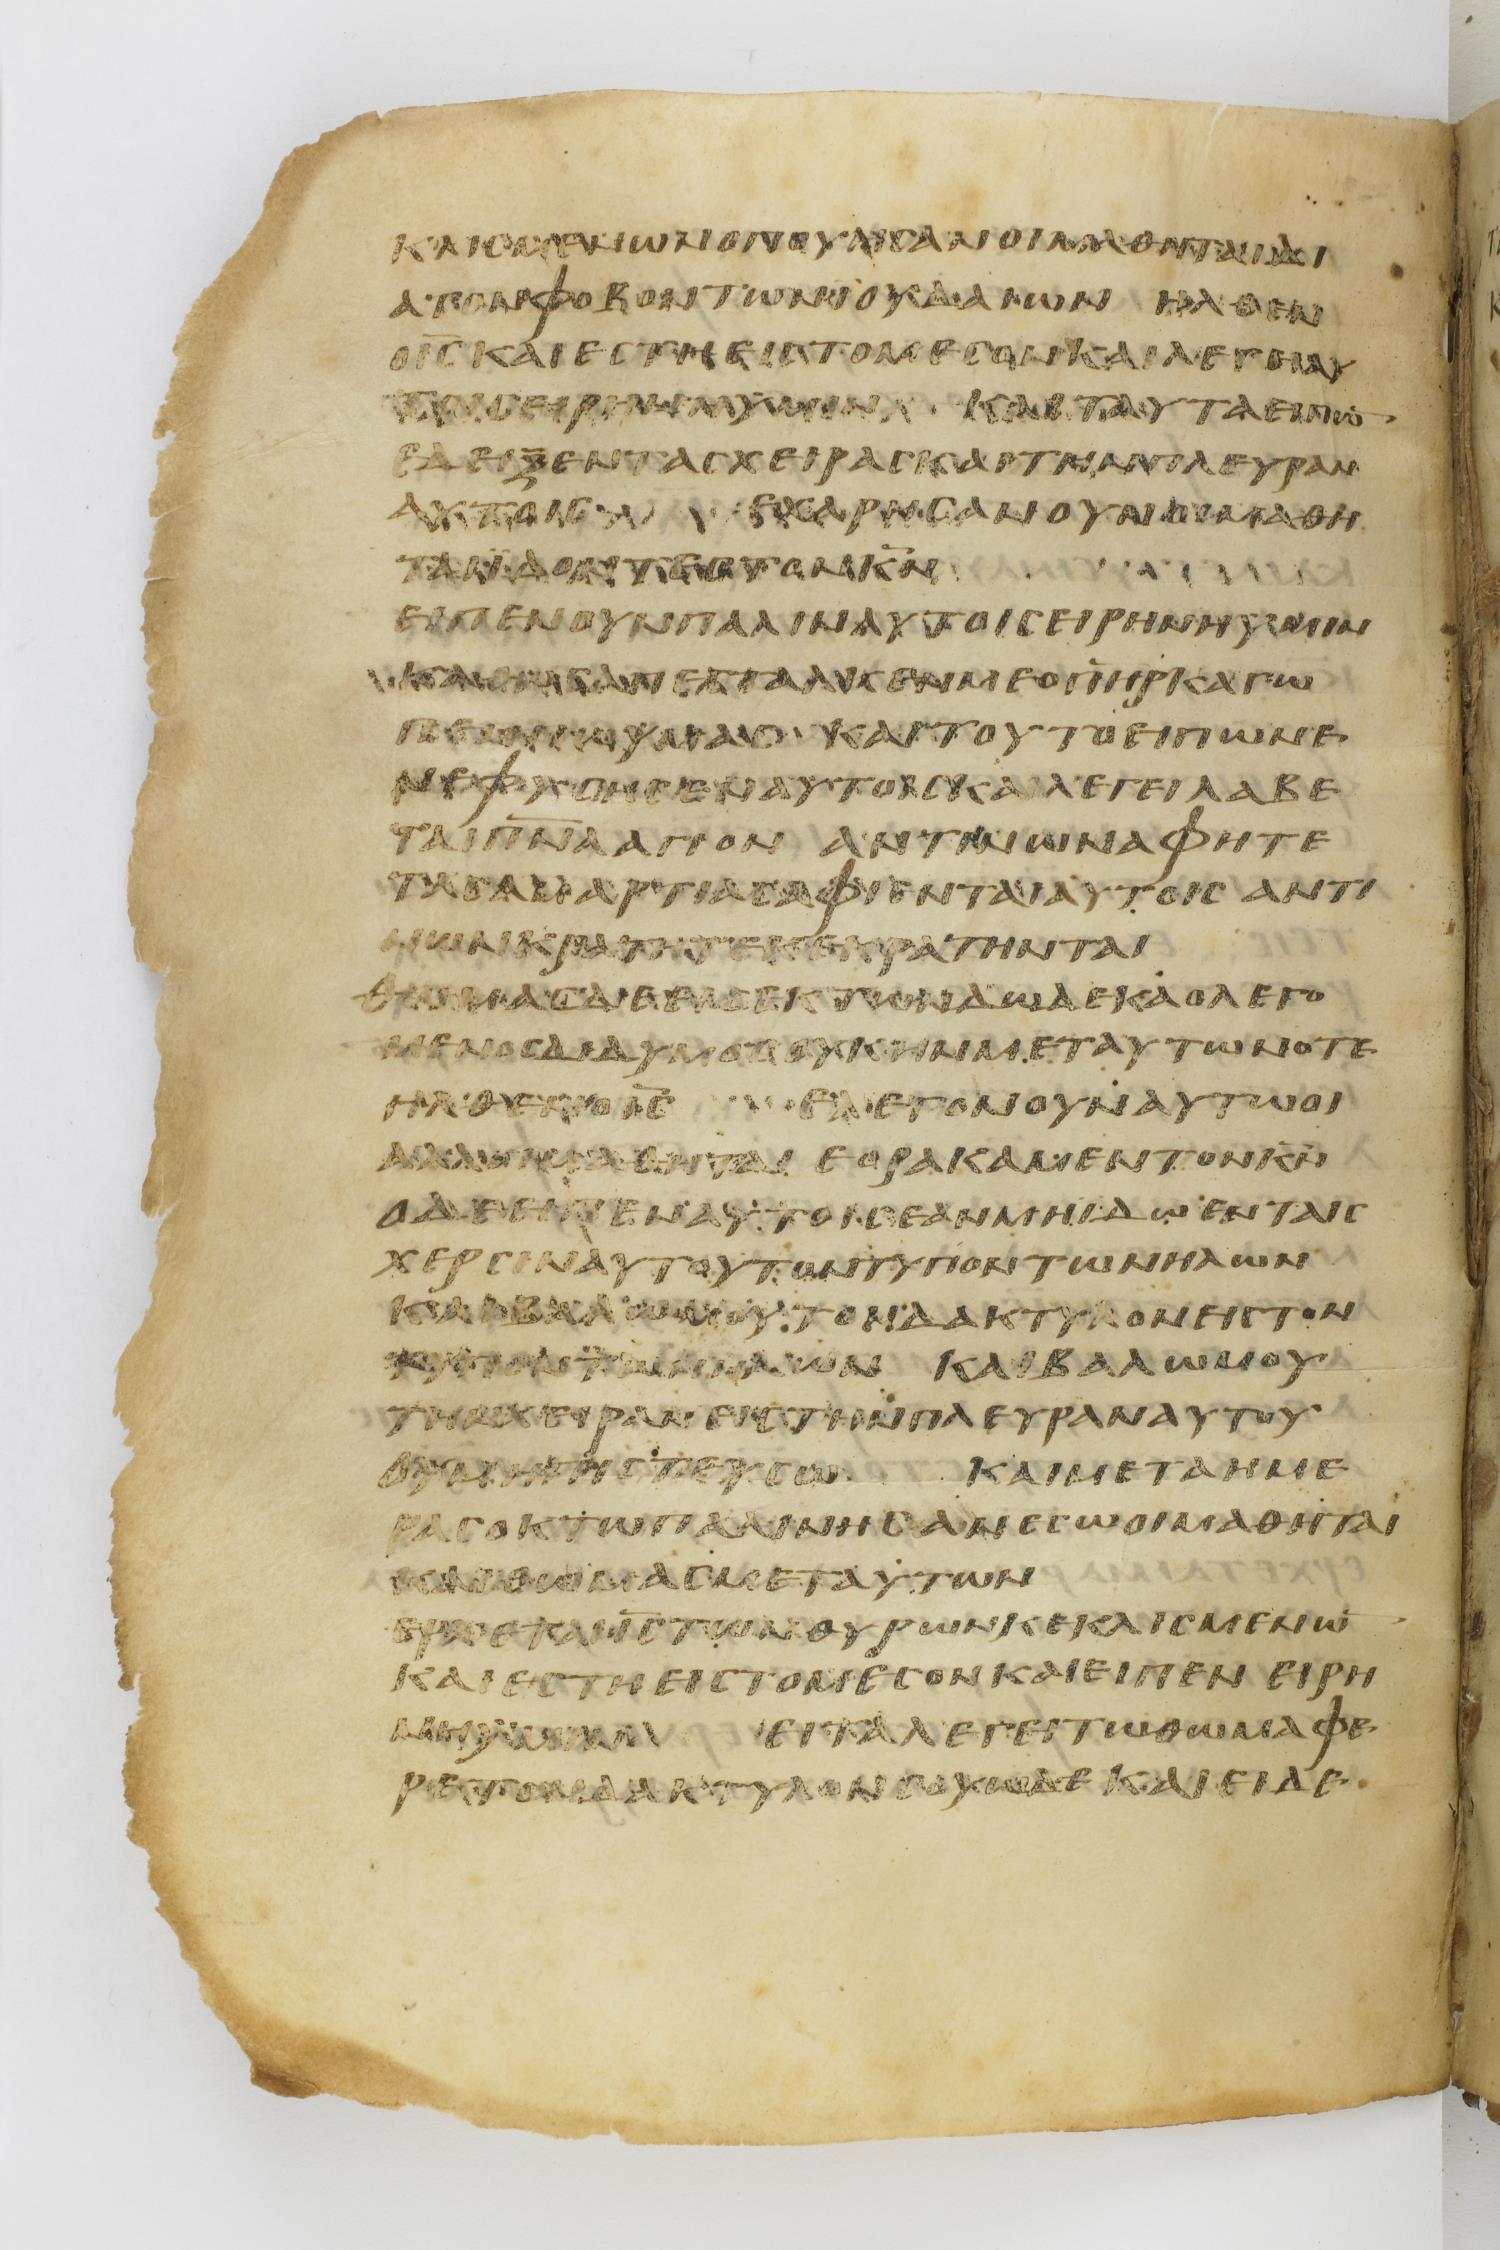 ΚΛΕΙϹΜΕΝΩΝΟΠΟΥΗϹΑΝΟΙΜΑΘΗΤΑΙΔΙ
ΑΤΟΝΦΟΒΟΝΤΩΝΙΟΥΔΑΙΩΝ ΗΛΘΕΝ
ΟΙϹΚΑΙΕϹΤΗΕΙϹΤΟΜΕϹΟΝΚΑΙΛΕΓΕΙΑΥ
ΤΟΙϹΕΙΡΗΝΗΥΜΙΝ ΚΑΙΤΑΥΤΑΕΙΠΩ
ΕΔΕΙΞΕΝΤΑϹΧΕΙΡΑϹΚΑΙΤΗΝΠΛΕΥΡΑΝ
ΑΥΤΟΙϹ ΕΧΑΡΗϹΑΝΟΥΝΟΙΜΑΘΗ
ΤΑΙΙΔΟΝΤΕϹΤΟΝΚΝ
ΕΙΠΕΝΟΥΝΠΑΛΙΝΑΥΤΟΙϹΕΙΡΗΝΗΥΜΙΝ
ΚΑΘΩϹΑΠΕϹΤΑΛΚΕΝΜΕΟΠΗΡΚΑΓΩ
ΠΕΜΠΩΥΜΑϹ ΚΑΙΤΟΥΤΟΕΙΠΩΝΕ
ΝΕΦΥϹΗϹΕΝΑΥΤΟΙϹΚΑΙΛΕΓΕΙΛΑΒΕ
ΤΑΙΠΝΑΑΓΙΟΝ ΑΝΤΙΝΩΝΑΦΗΤΕ
ΤΑϹΑΜΑΡΤΙΑϹΑΦΙΕΝΤΑΙΑΥΤΟΙϹ ΑΝΤΙ
ΝΩΝΚΡΑΤΗΤΕΚΕΚΡΑΤΗΝΤΑΙ
ΘΩΜΑϹΔΕΕΙϹΕΚΤΩΝΔΩΔΕΚΑΟΛΕΓΟ
ΜΕΝΟϹΔΙΔΥΜΟϹΟΥΚΗΝΜΕΤΑΥΤΩΝΟΤΕ
ΗΛΘΕΝΟΙϹ ΕΛΕΓΟΝΟΥΝΑΥΤΩΟΙ
ΑΛΛΟΙΜΑΘΗΤΑΙ ΕΟΡΑΚΑΜΕΝΤΟΝΚΝ
ΟΔΕΕΙΠΕΝΑΥΤΟΙϹΕΑΝΜΗΙΔΩΕΝΤΑΙϹ
ΧΕΡϹΙΝΑΥΤΟΥΤΟΝΤΥΠΟΝΤΩΝΗΛΩΝ
ΚΑΙΒΑΛΩΜΟΥΤΟΝΔΑΚΤΥΛΟΝΕΙϹΤΟΝ
ΤΥΠΟΝΤΩΝΗΛΩΝ ΚΑΙΒΑΛΩΜΟΥ
ΤΗΝΧΕΙΡΑΝΕΙϹΤΗΝΠΛΕΥΡΑΝΑΥΤΟΥ
ΟΥΜΗΠΙϹΤΕΥϹΩ ΚΑΙΜΕΤΑΗΜΕ
ΡΑϹΟΚΤΩΠΑΛΙΝΗϹΑΝΕϹΩΟΙΜΑΘΗΤΑΙ
ΚΑΙΘΩΜΑϹΜΕΤΑΥΤΩΝ
ΕΡΧΕΤΑΙΟΙϹΤΩΝΘΥΡΩΝΚΕΚΛΙϹΜΕΝΩ
ΚΑΙΕϹΤΗΕΙϹΤΟΜΕϹΟΝΚΑΙΕΙΠΕΝ ΕΙΡΗ
ΝΗΥΜΙΝ ΕΙΤΑΛΕΓΕΙΤΩΘΩΜΑΦΕ
ΡΕΤΟΝΔΑΚΤΥΛΟΝϹΟΥΩΔΕΚΑΙΕΙΔΕ